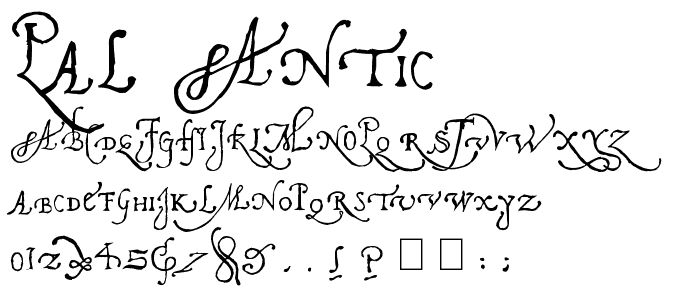 PAL ANTIC
ABCDEFGHIJKLMNOPQRSTUVWXYZ
ABCDEFGHIJKLMNOPQRSTUVWXYZ
0123456789 . . : ;